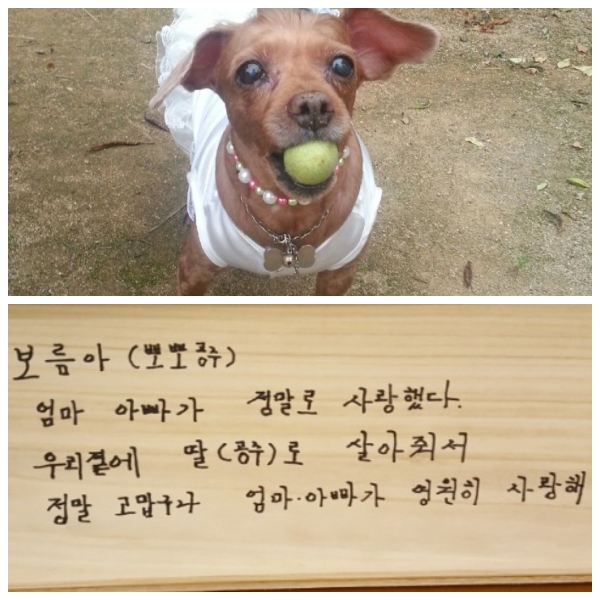 보름아 (뽀뽀공주)
엄마 아빠가 정말로 사랑했다.
우리곁에 딸(공주)로 살아줘서
정말 고맙구나 엄마·아빠가 영원히 사랑해